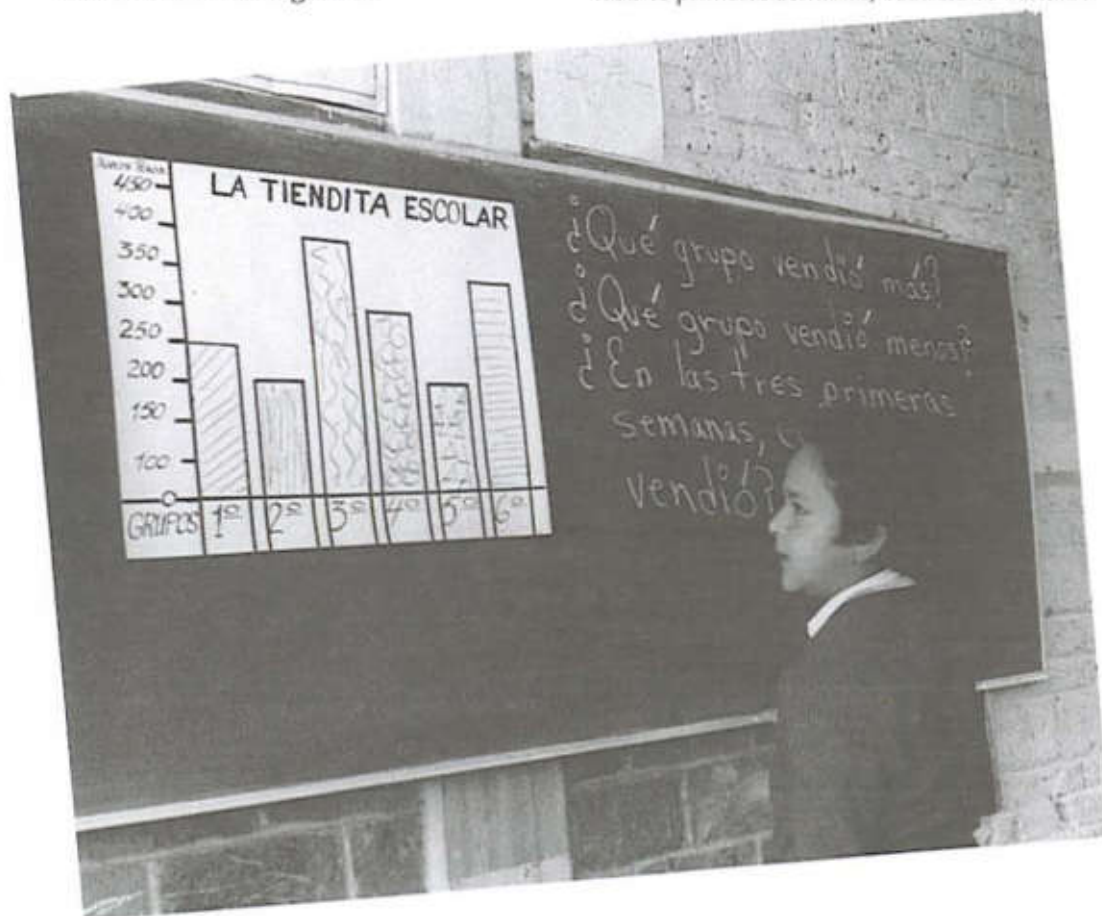 LA TIENDITA ESCOLAR
450
400
350
300
250
200
150
100
0
GRUPOS 1º 2º 3º 4º 5º 6º
¿Qué grupo vendió más?
¿Qué grupo vendió menos?
¿En las tres primeras
semanas,
vendió?